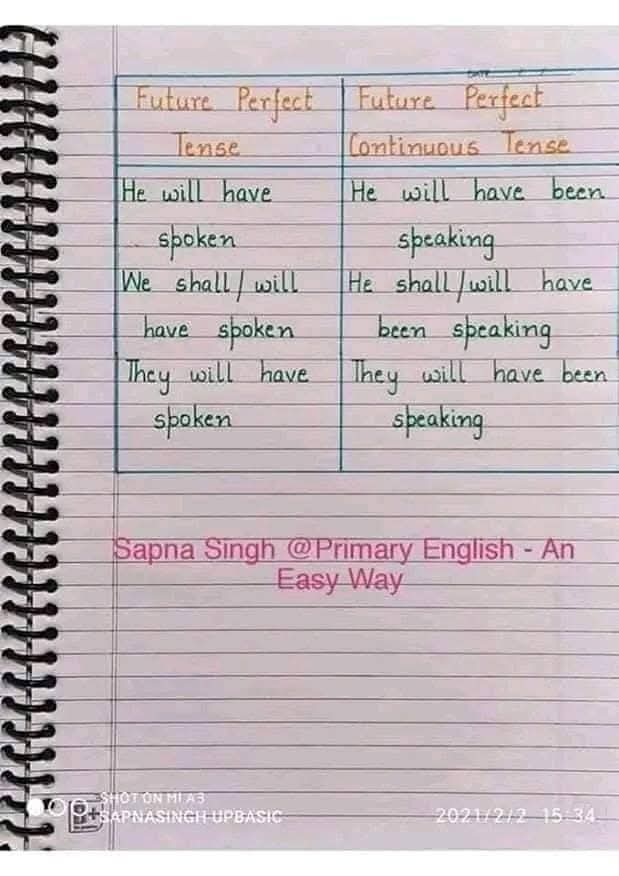 DATE
Future Perfect
Tense
Future Perfect
Continuous Tense
He will have
spoken
He will have been
speaking
We shall / will
have spoken
He shall / will have
been speaking
They will have
spoken
They will have been
speaking
Sapna Singh @Primary English - An
Easy Way
SHOT ON MI A3
SAPNASINGH UPBASIC
2021/2/2 15:34